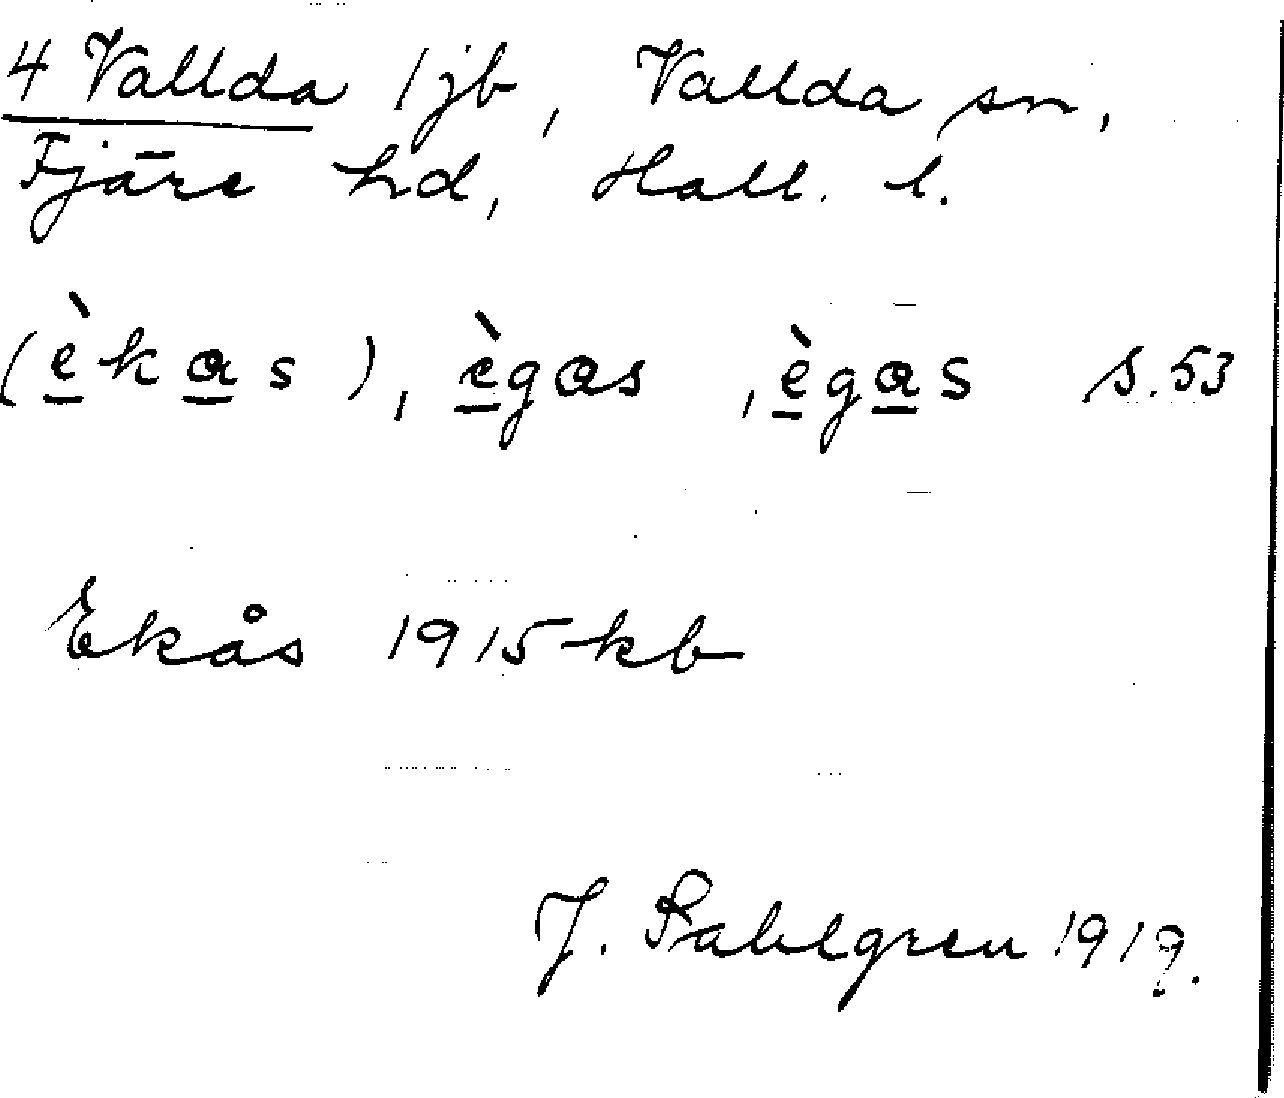 4 Vallda 1 jb, Vallda sn,
Fjäre hd, Hall. l.
(èkas), ègas, ègas s.53
Ekås 1915 kb
J. Sahlgren 1919.